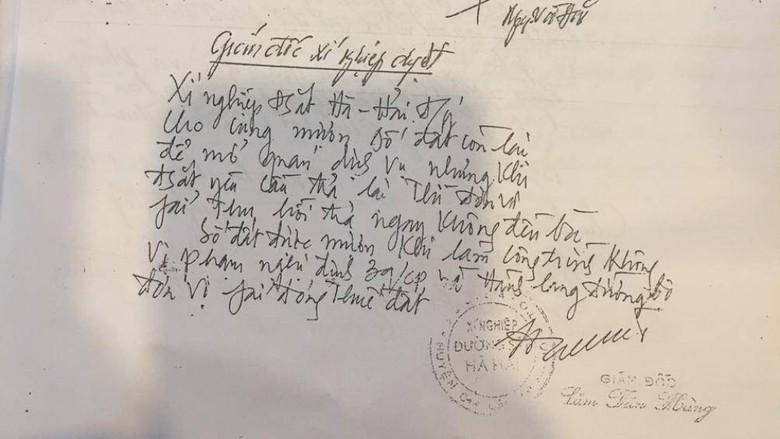 Nguyễn Hữu
Giám đốc xí nghiệp duyệt
Xí nghiệp đsắt Hà - Hải Đ/ý
cho cùng mườn số đất còn lại
để mở quán dịch vụ nhưng khi
Đsắt yêu cầu thả lại thì đơn vị
fải thu hồi thả ngay không đền bù
Số đất được mườn khi làm công trình không
vi phạm nghị định 39/CP về hành lang đường bộ
Đơn vị fải đóng thuế đất
XÍ NGHIỆP
ĐƯỜNG S
HÀ HẢI
HUYỆN
GIÁM ĐỐC
Lâm Văn Hùng